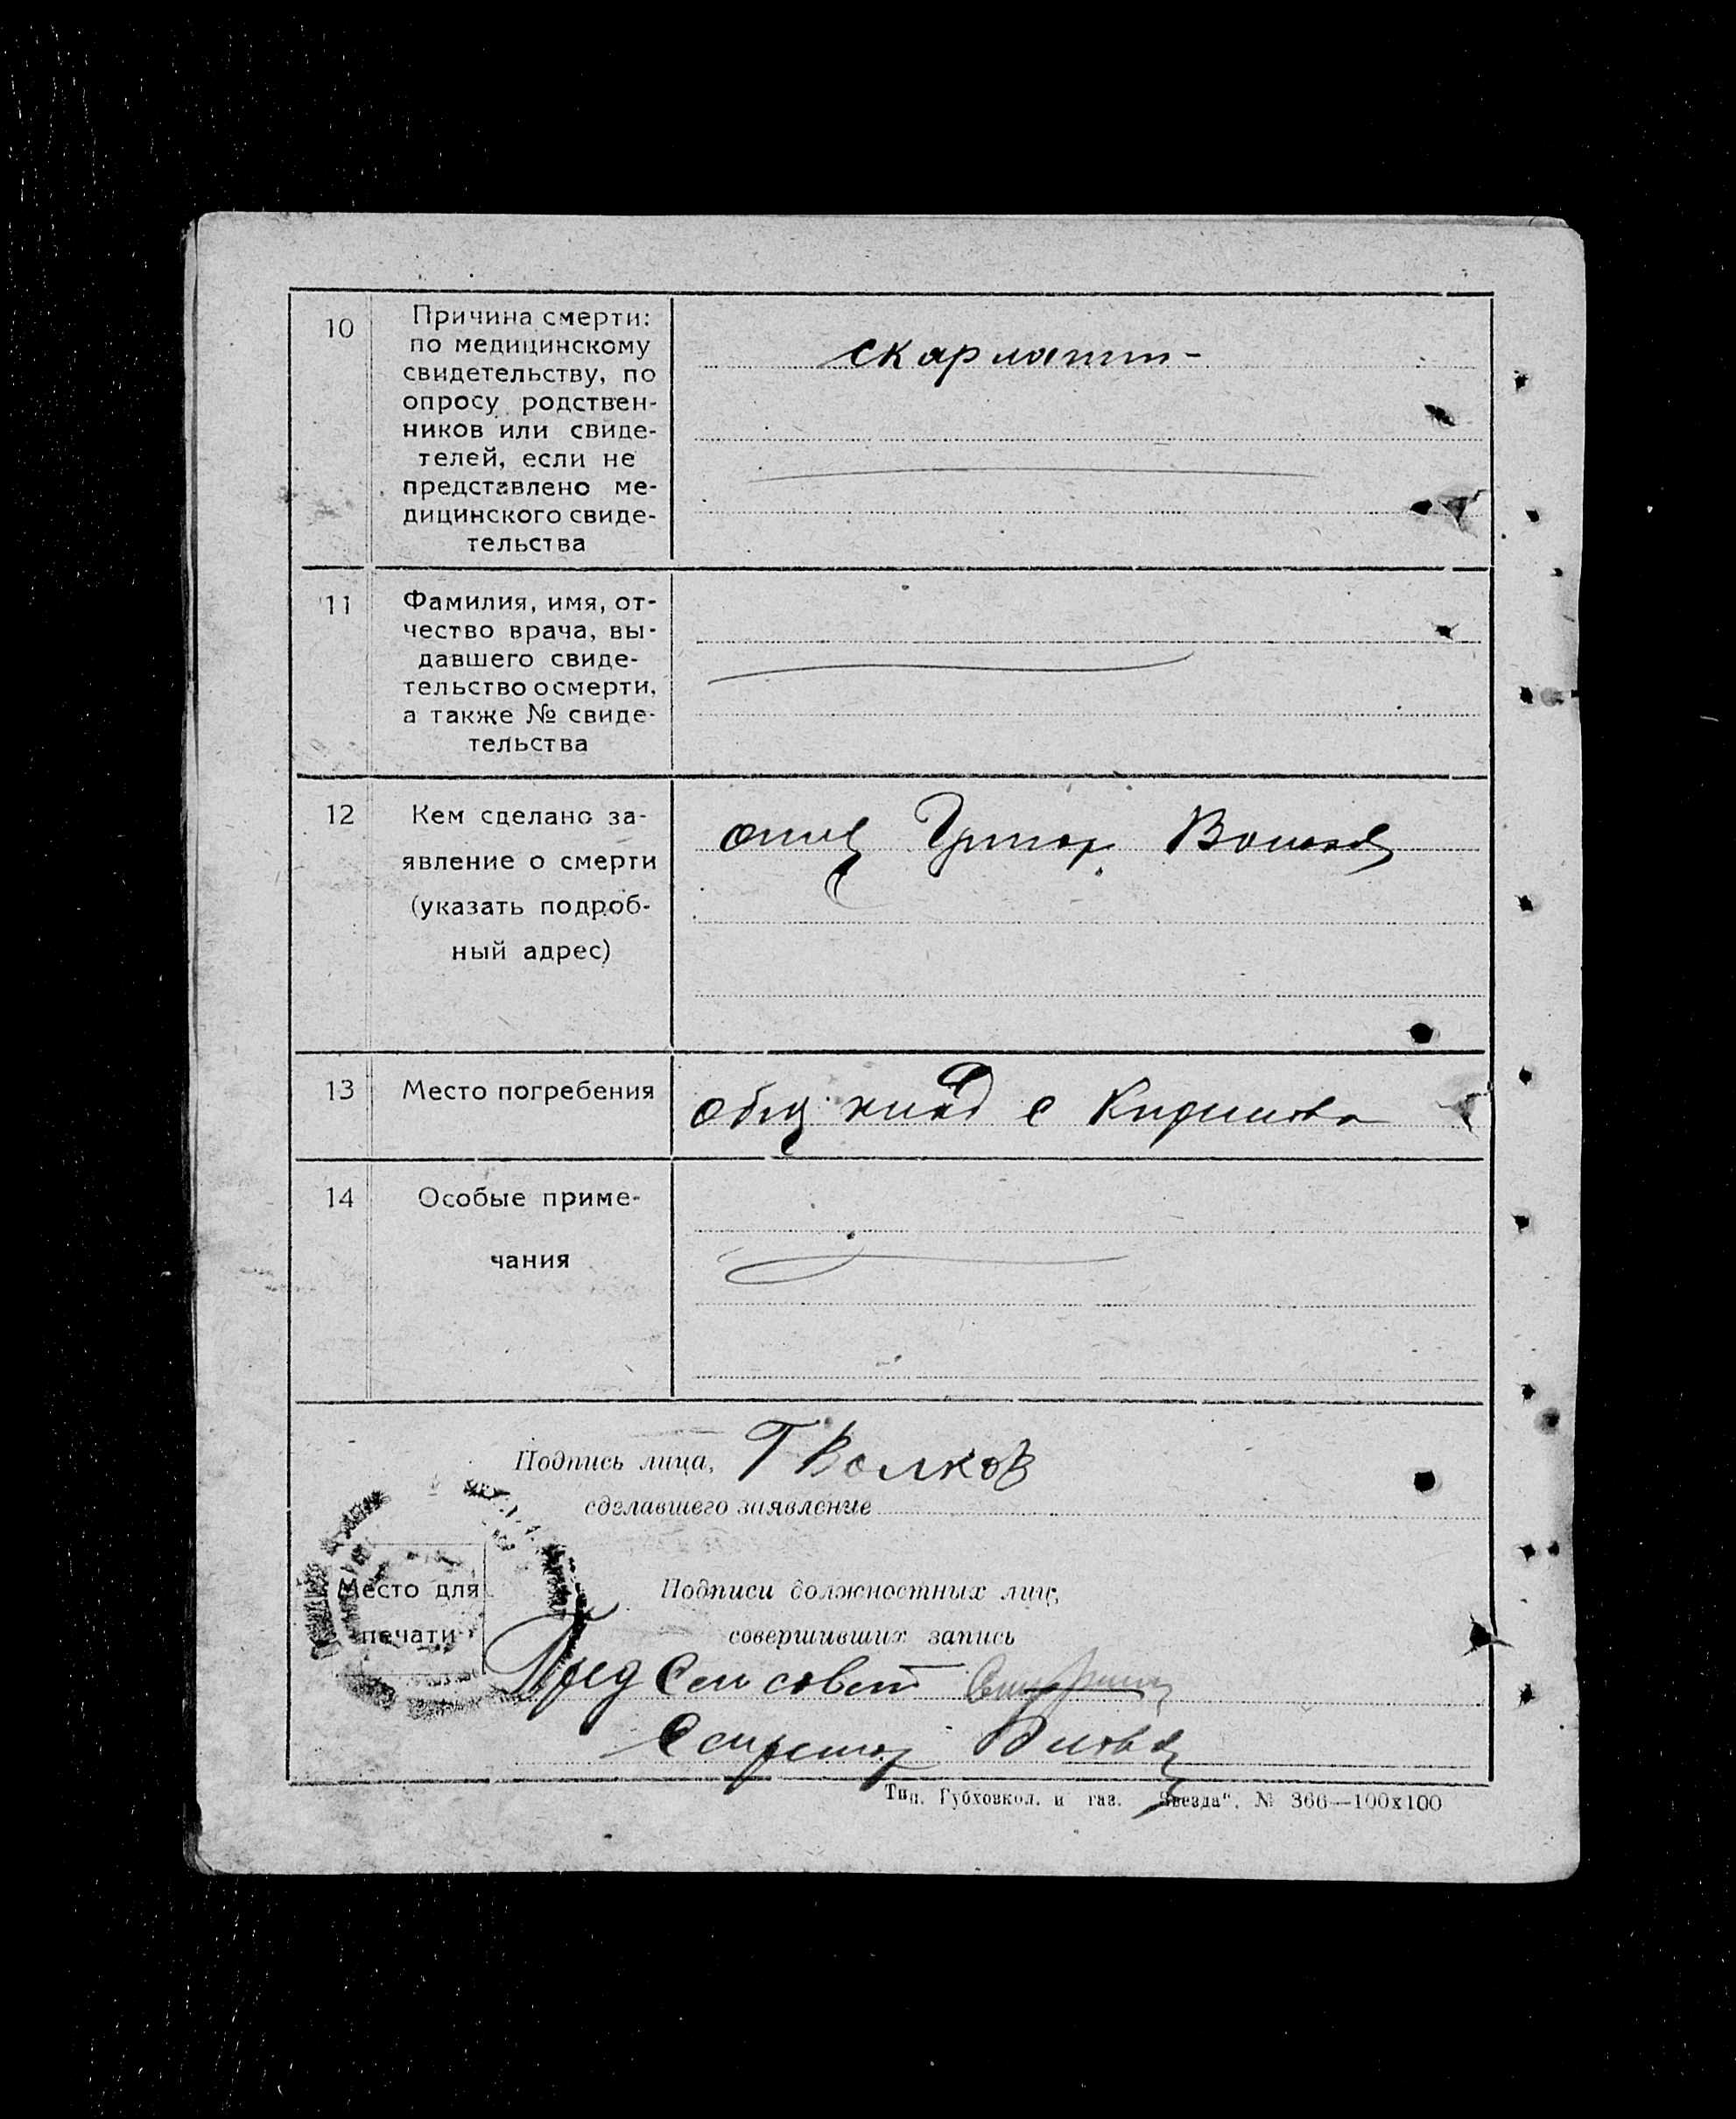 10 Причина смерти:
по медицинскому
свидетельству, по
опросу родствен-
ников или свиде-
телей, если не
представлено ме-
дицинского свиде-
тельства
скарлатин-
11 Фамилия, имя, от-
чество врача, вы-
давшего свиде-
тельство о смерти,
а также № свиде-
тельства
12 Кем сделано за-
явление о смерти
(указать подроб-
ный адрес)
отец Григор. Волков
13 Место погребения
общ клад с
14 Особые приме-
чания
Подпись лица, Г Волков
сделавшего заявление
Место для
печати
Подписи должностных лиц,
совершивших запись
Пред Сельсовет
Секретар
Тип. Губховкол. и газ. „Звезда“. № 366—100х100